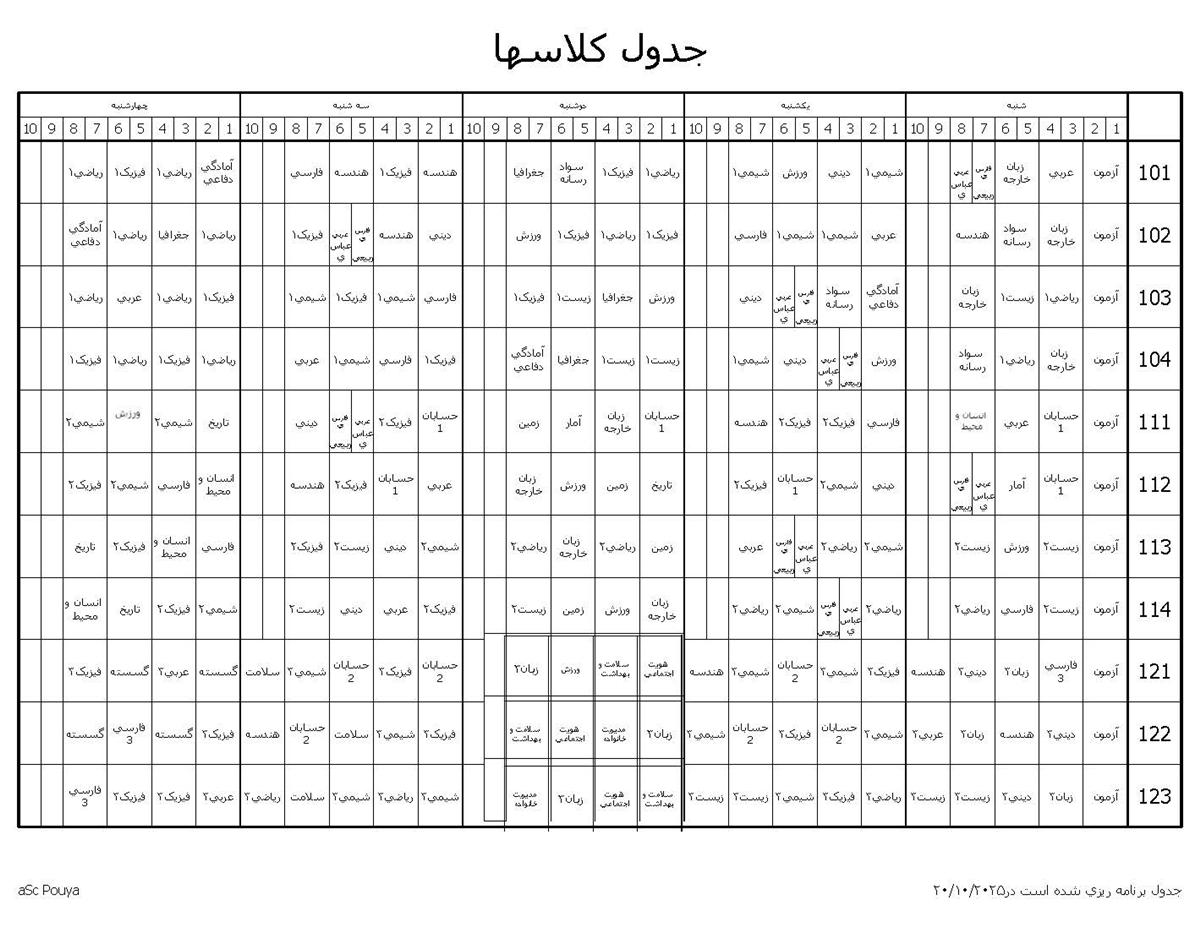 جدول کلاسها
شنبه یکشنبه دوشنبه سه شنبه چهارشنبه
1 2 3 4 5 6 7 8 9 10 1 2 3 4 5 6 7 8 9 10 1 2 3 4 5 6 7 8 9 10 1 2 3 4 5 6 7 8 9 10 1 2 3 4 5 6 7 8 9 10
101 آزمون عربي زبان خارجه فارسي ربيعي عربي عباسي شيمي۱ ديني ورزش شيمي۱ رياضي۱ فيزيک۱ سواد رسانه جغرافيا هندسه فيزيک۱ هندسه فارسي آمادگي دفاعي رياضي۱ فيزيک۱ رياضي۱
102 آزمون زبان خارجه سواد رسانه هندسه عربي شيمي۱ شيمي۱ فارسي فيزيک۱ رياضي۱ فيزيک۱ ورزش ديني هندسه فارسي ربيعي عربي عباسي فيزيک۱ رياضي۱ جغرافيا رياضي۱ آمادگي دفاعي
103 آزمون رياضي۱ زيست۱ زبان خارجه آمادگي دفاعي سواد رسانه فارسي ربيعي عربي عباسي ديني ورزش جغرافيا زيست۱ فيزيک۱ فارسي شيمي۱ فيزيک۱ شيمي۱ فيزيک۱ رياضي۱ عربي رياضي۱
104 آزمون زبان خارجه رياضي۱ سواد رسانه ورزش فارسي ربيعي عربي عباسي ديني شيمي۱ زيست۱ زيست۱ جغرافيا آمادگي دفاعي فيزيک۱ فارسي شيمي۱ عربي رياضي۱ فيزيک۱ رياضي۱ فيزيک۱
111 آزمون حسابان 1 عربي انسان و محيط فارسي فيزيک۲ فيزيک۲ هندسه حسابان 1 زبان خارجه آمار زمين حسابان 1 فيزيک۲ عربي عباسي فارسي ربيعي ديني تاريخ شيمي۲ ورزش شيمي۲
112 آزمون حسابان 1 آمار عربي عباسي فارسي ربيعي ديني شيمي۲ حسابان 1 فيزيک۲ تاريخ زمين ورزش زبان خارجه عربي حسابان 1 فيزيک۲ هندسه انسان و محيط فارسي شيمي۲ فيزيک۲
113 آزمون زيست۲ ورزش زيست۲ شيمي۲ رياضي۲ عربي عباسي فارسي ربيعي عربي زمين رياضي۲ زبان خارجه رياضي۲ شيمي۲ ديني زيست۲ فيزيک۲ فارسي انسان و محيط فيزيک۲ تاريخ
114 آزمون زيست۲ فارسي رياضي۲ رياضي۲ عربي عباسي فارسي ربيعي شيمي۲ رياضي۲ زبان خارجه ورزش زمين زيست۲ فيزيک۲ عربي ديني زيست۲ شيمي۲ فيزيک۲ تاريخ انسان و محيط
121 آزمون فارسي 3 زبان۳ ديني۳ هندسه فيزيک۳ شيمي۳ حسابان 2 شيمي۳ هندسه هويت اجتماعي سلامت و بهداشت ورزش زبان۳ حسابان 2 فيزيک۳ حسابان 2 شيمي۳ سلامت گسسته عربي۳ گسسته فيزيک۳
122 آزمون ديني۳ هندسه زبان۳ عربي۳ شيمي۳ حسابان 2 فيزيک۳ حسابان 2 شيمي۳ زبان۳ مديريت خانواده هويت اجتماعي سلامت و بهداشت فيزيک۳ شيمي۳ سلامت حسابان 2 هندسه فيزيک۳ گسسته فارسي 3 گسسته
123 آزمون زبان۳ ديني۳ زيست۳ زيست۳ رياضي۳ فيزيک۳ شيمي۳ زيست۳ زيست۳ سلامت و بهداشت هويت اجتماعي زبان۳ مديريت خانواده شيمي۳ رياضي۳ شيمي۳ سلامت رياضي۳ عربي۳ فيزيک۳ فيزيک۳ فارسي 3
جدول برنامه ريزي شده است در۲۰/۱۰/۲۰۲۵
aSc Pouya